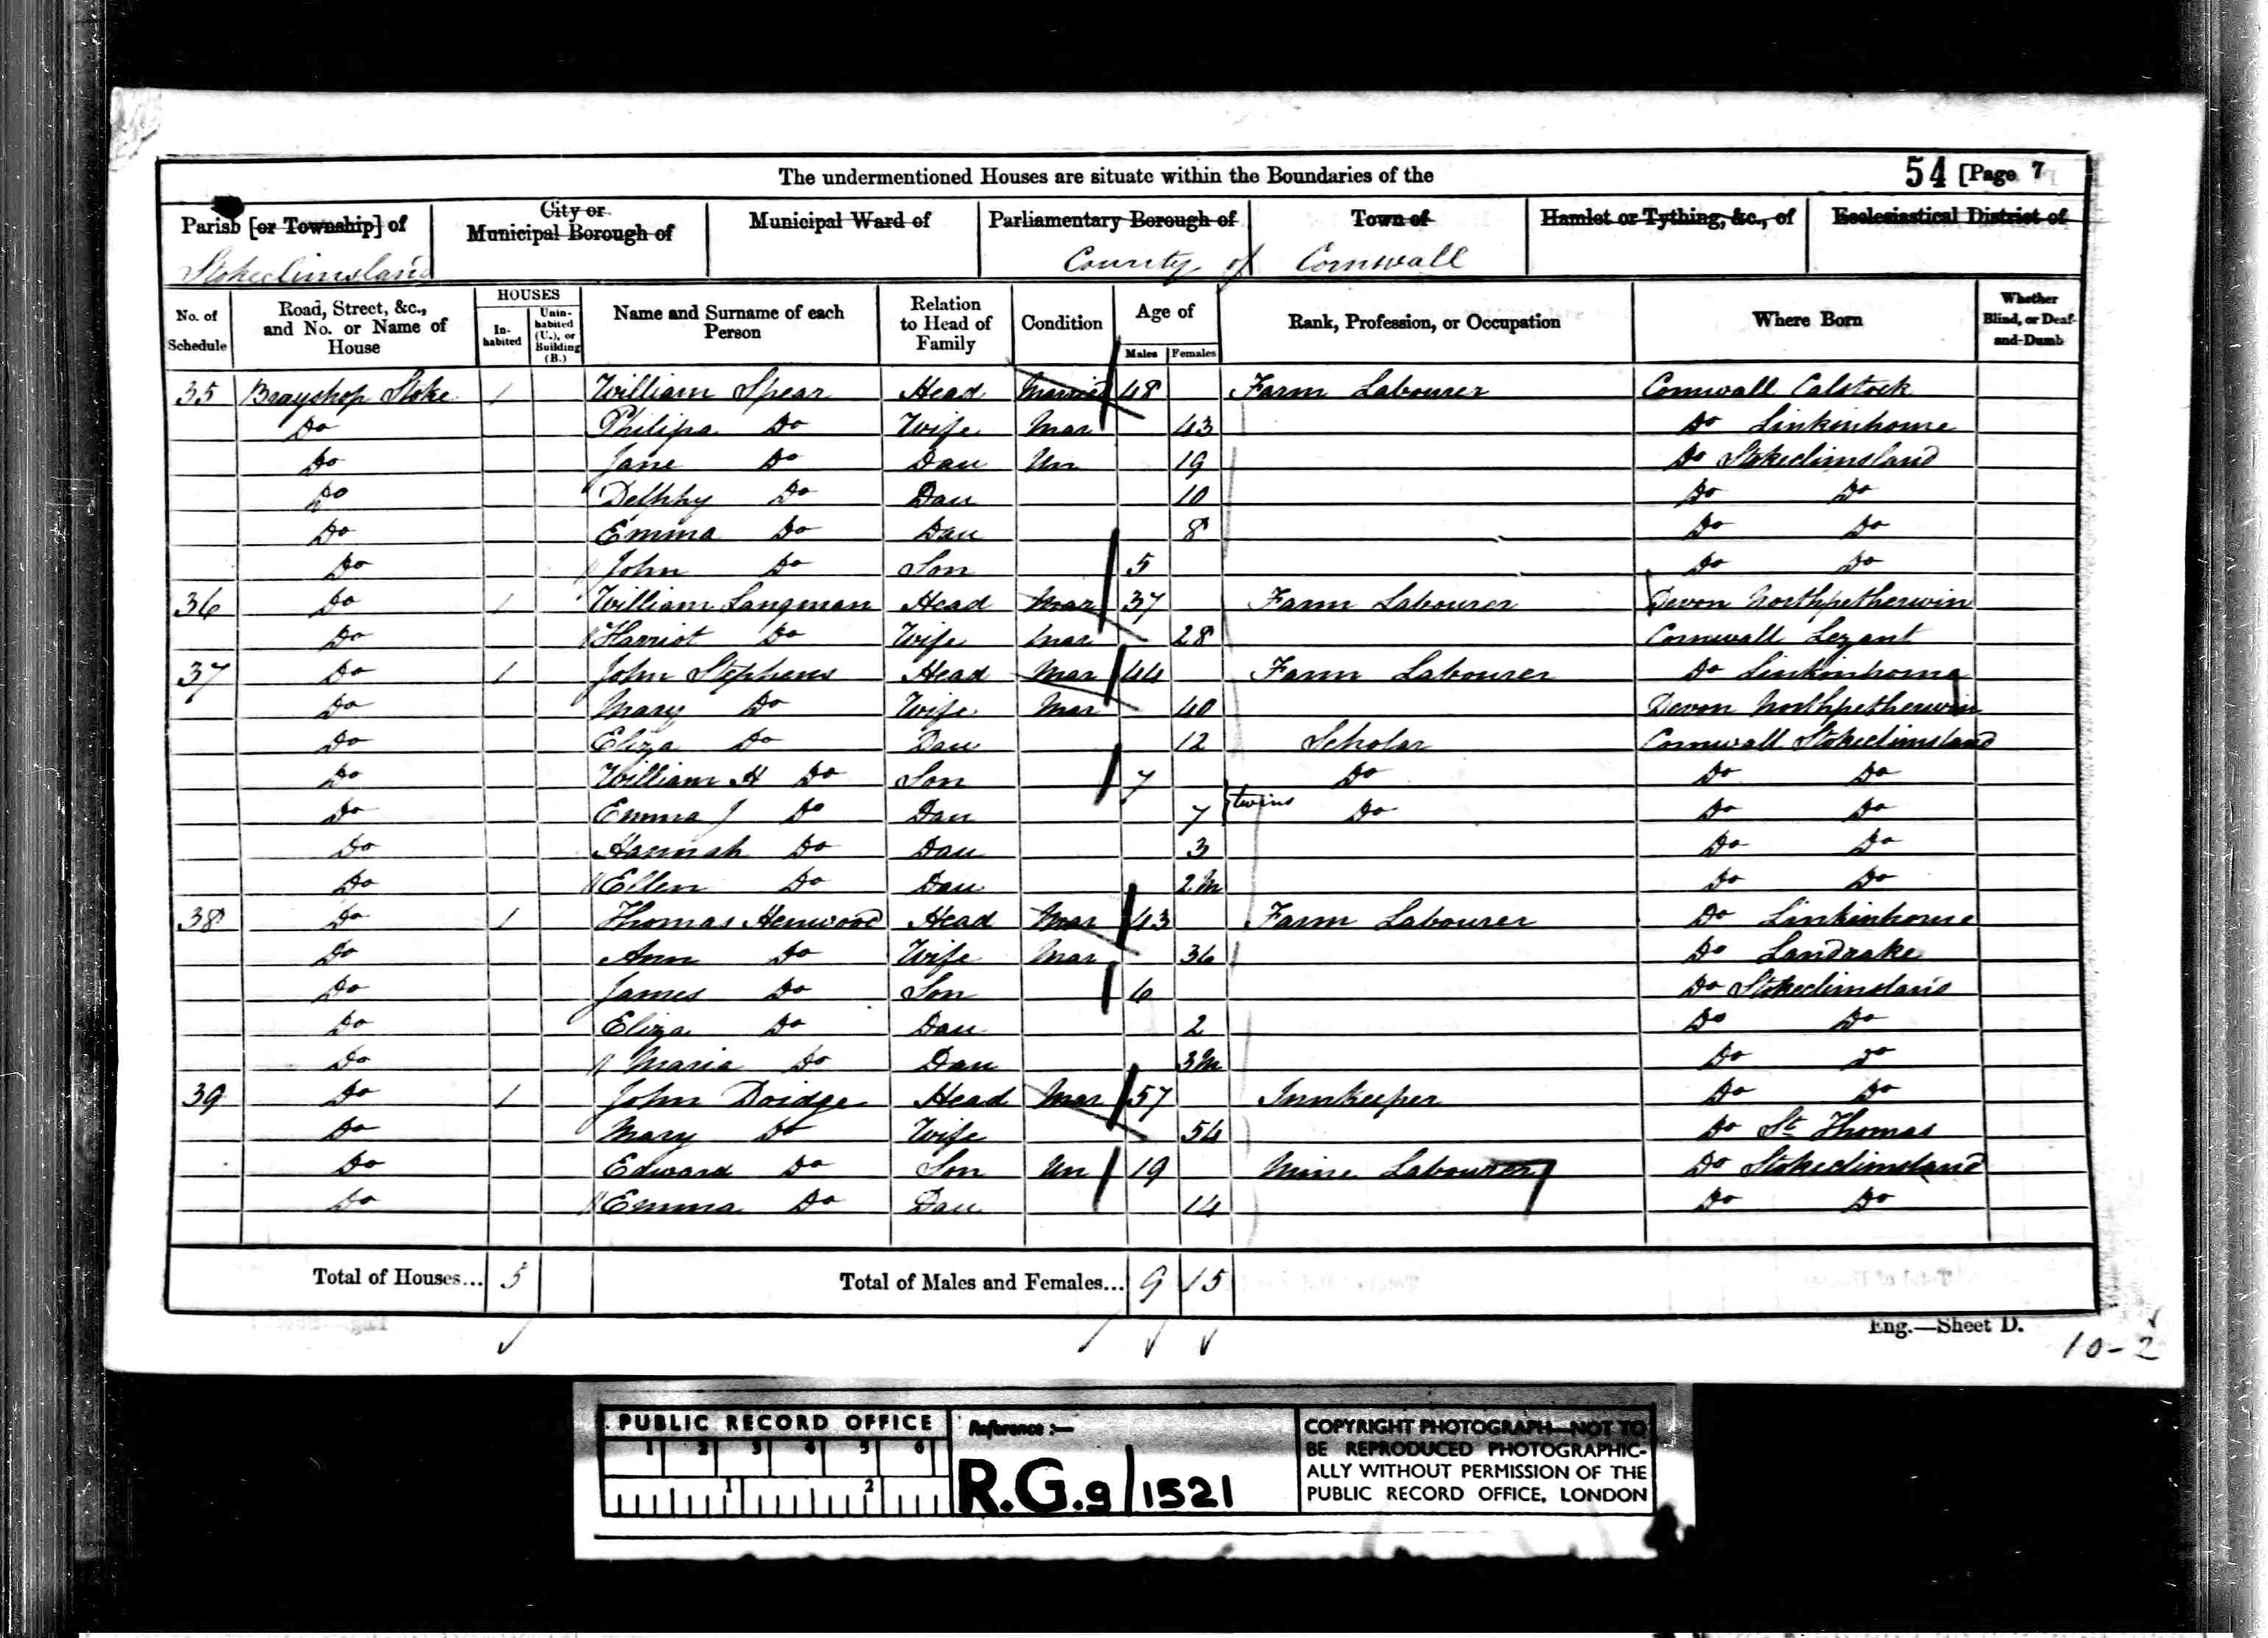 The undermentioned Houses are situate within the Boundaries of the 54 [Page 7
Parish [or Township] of City or Municipal Borough of Municipal Ward of Parliamentary Borough of Town of Hamlet or Tything, &c., of Ecclesiastical District of
Stokeclimsland County of Cornwall
No. of Schedule Road, Street, &c., and No. or Name of House HOUSES In-habited Unin-habited (U.), or Building (B.) Name and Surname of each Person Relation to Head of Family Condition Age of Males Females Rank, Profession, or Occupation Where Born Whether Blind, or Deaf-and-Dumb
35 Brayshop Stoke 1 William Spear Head Married 48 Farm Labourer Cornwall Calstock
Do Philipa Do Wife Mar 43 Do Linkinhorne
Do Jane Do Dau Un 19 Do Stokeclimsland
Do Delphy Do Dau 10 Do Do
Do Emma Do Dau 8 Do Do
Do John Do Son 5 Do Do
36 Do 1 William Langman Head Mar 37 Farm Labourer Devon Northpetherwin
Do Harriot Do Wife Mar 28 Cornwall Lezant
37 Do 1 John Stephens Head Mar 44 Farm Labourer Do Linkinhorne
Do Mary Do Wife Mar 40 Devon Northpetherwin
Do Eliza Do Dau 12 Scholar Cornwall Stokeclimsland
Do William H Do Son 7 Do Do Do
Do Emma J Do Dau 7 } twins Do Do Do
Do Hannah Do Dau 3 Do Do
Do Ellen Do Dau 2M Do Do
38 Do 1 Thomas Henwood Head Mar 43 Farm Labourer Do Linkinhorne
Do Ann Do Wife Mar 36 Do Landrake
Do James Do Son 6 Do Stokeclimsland
Do Eliza Do Dau 2 Do Do
Do Maria Do Dau 3M Do Do
39 Do 1 John Doidge Head Mar 57 Innkeeper Do Do
Do Mary Do Wife 54 Do St Thomas
Do Edward Do Son Un 19 Mine Labourer Do Stokeclimsland
Do Emma Do Dau 14 Do Do
Total of Houses... 5 Total of Males and Females... 9 15
Eng.—Sheet D.
10-2
PUBLIC RECORD OFFICE
1 2 3 4 5 6
1 2
Reference :—
R.G.9/1521
COPYRIGHT PHOTOGRAPH—NOT TO
BE REPRODUCED PHOTOGRAPHIC-
ALLY WITHOUT PERMISSION OF THE
PUBLIC RECORD OFFICE, LONDON